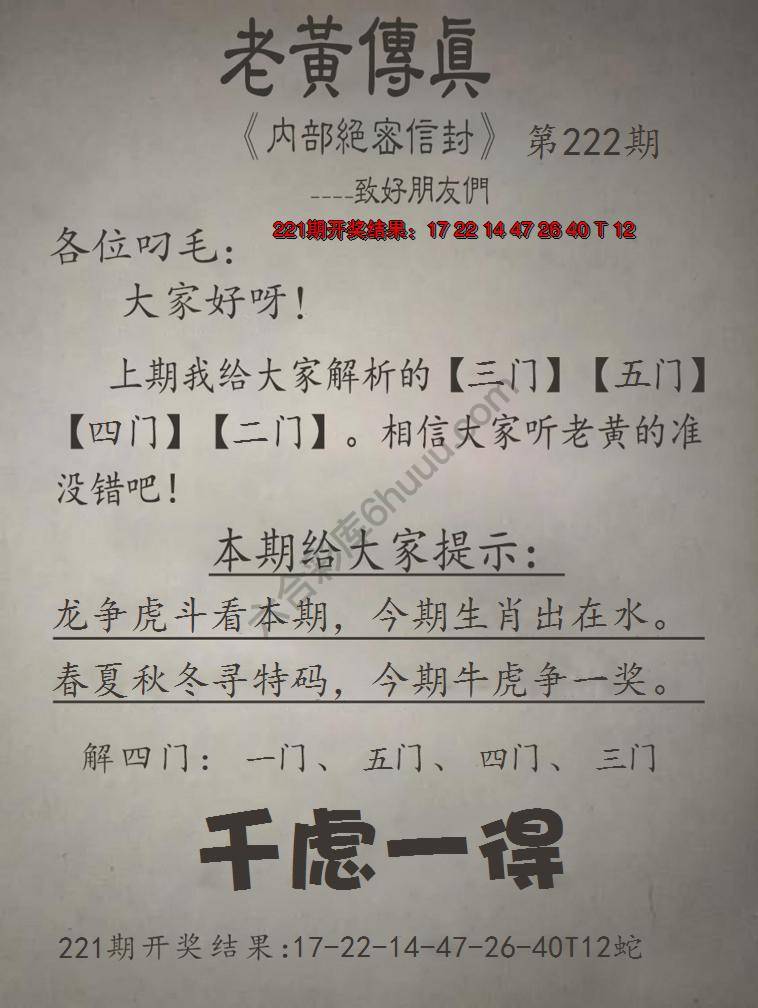 老黃傳真
《内部絕密信封》 第222期
----致好朋友們
221期开奖结果：17 22 14 47 26 40 T 12
各位叼毛：
大家好呀！
上期我给大家解析的【三门】【五门】
【四门】【二门】。相信大家听老黄的准
没错吧！
六合彩库6huuu.com
本期给大家提示：
龙争虎斗看本期，今期生肖出在水。
春夏秋冬寻特码，今期牛虎争一奖。
解四门：一门、五门、四门、三门
千虑一得
221期开奖结果:17-22-14-47-26-40T12蛇